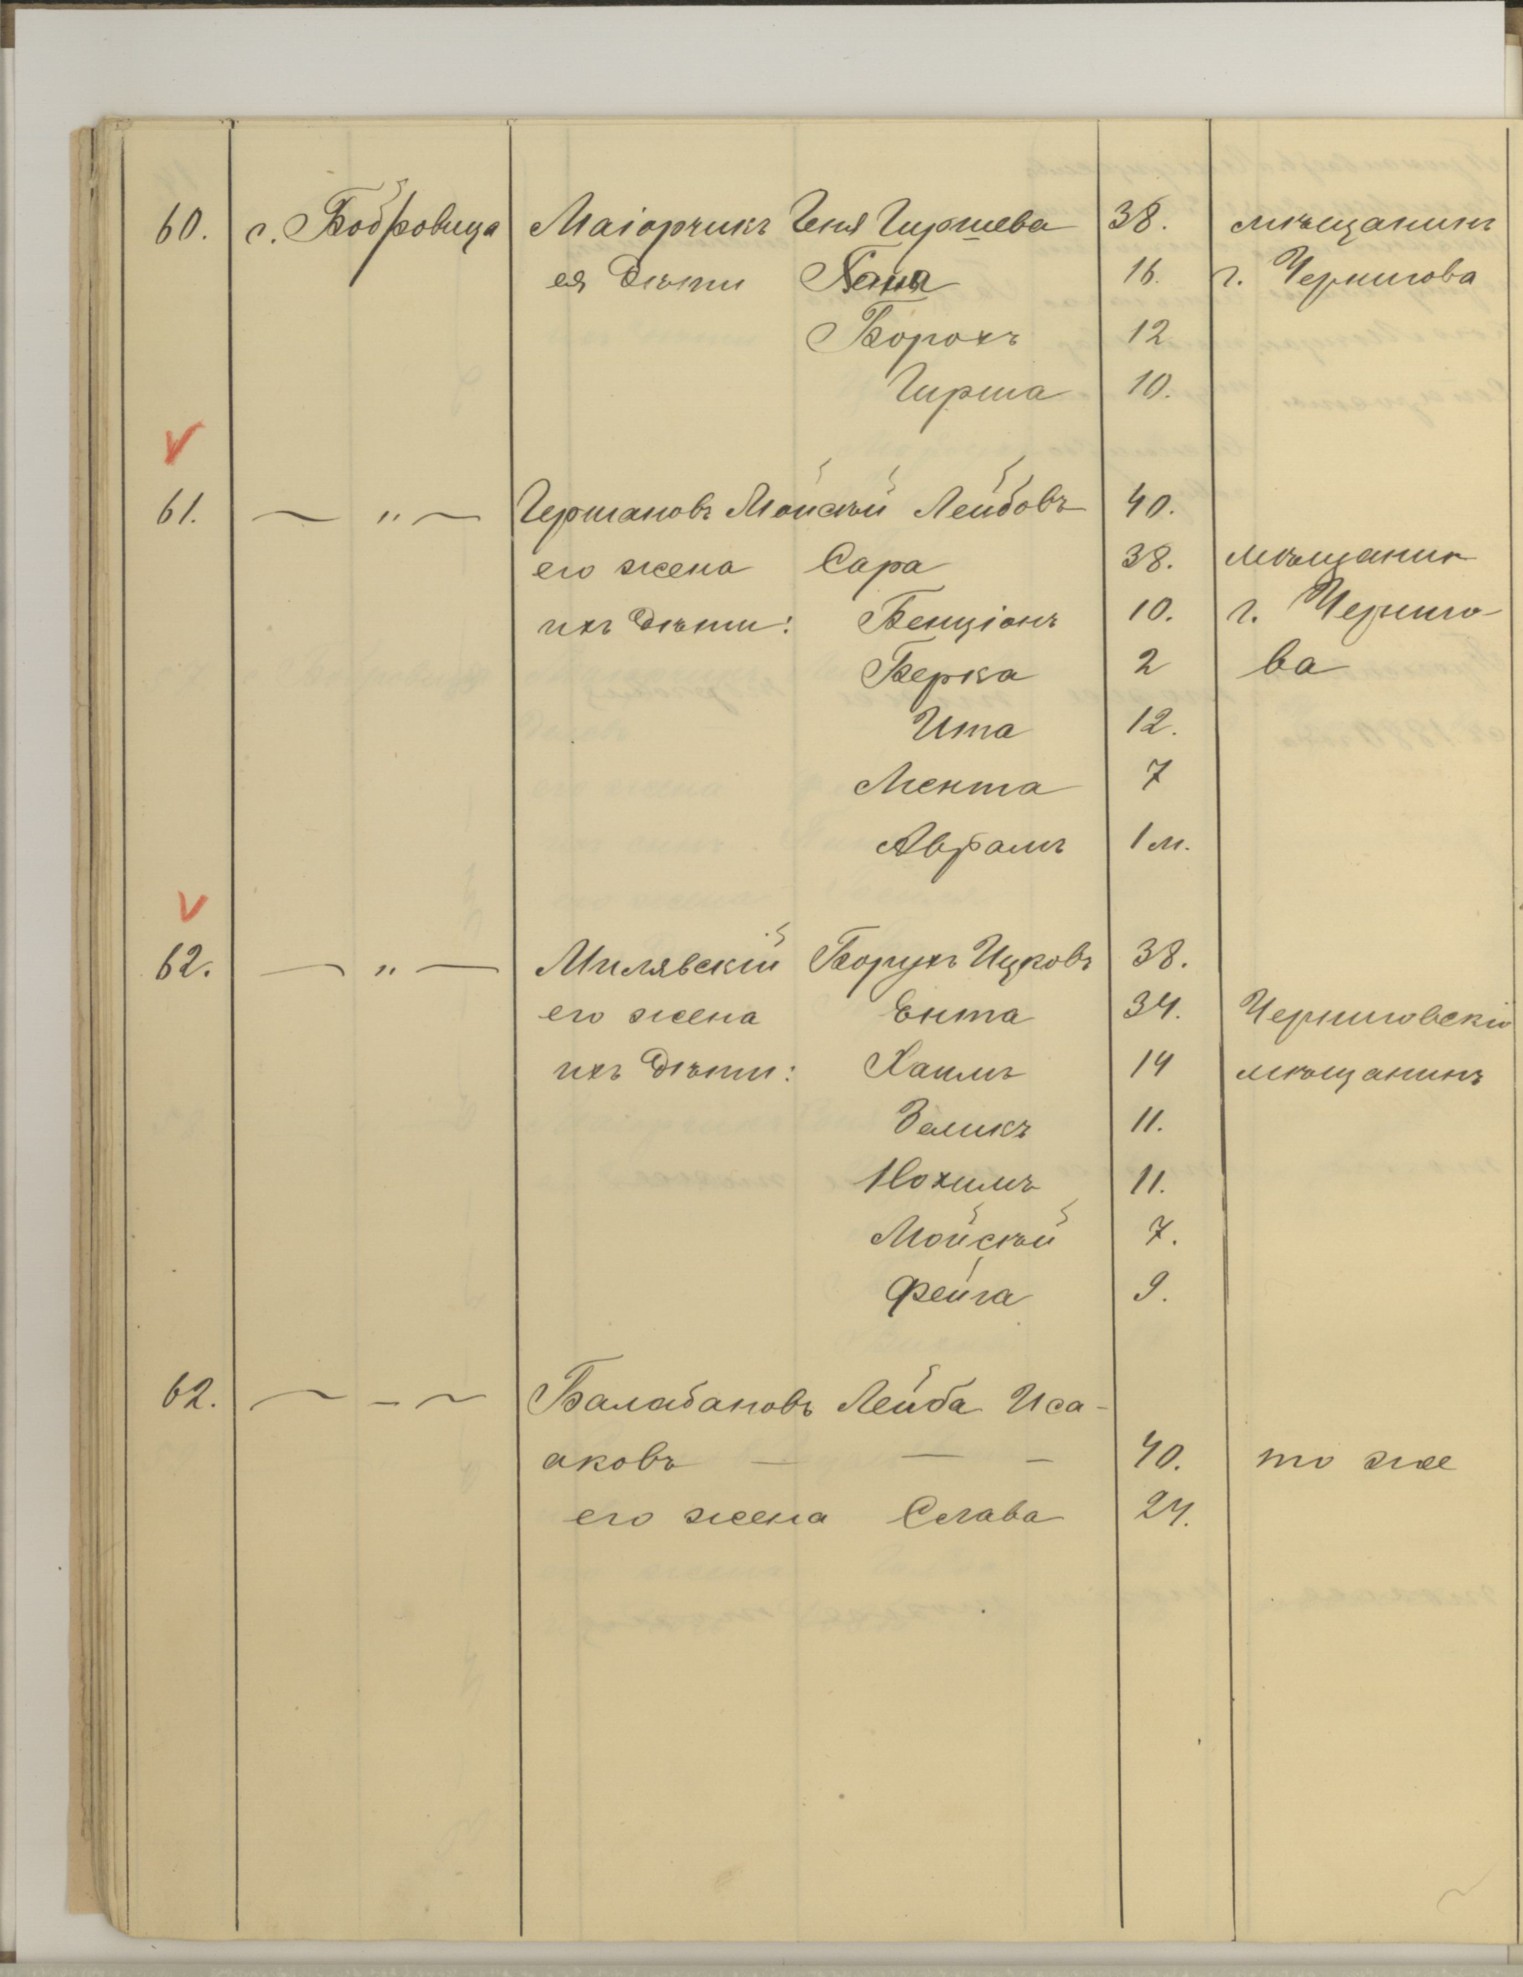 60. с. Бобровица Маіорчикъ Геня Гиршева 38. мѣщанинъ
ея дѣти 16. г. Чернигова
Борохъ 12
Гирша 10.
61. — " — Гершановъ Мойсѣй Лейбовъ 40.
его жена Сара 38. мѣщанин
ихъ дѣти: Бенціонъ 10. г. Черниго-
Берка 2 ва
Ита 12.
Мента 7
Аврамъ 1 м.
62. — " — Милявскій Борухъ Ицковъ 38.
его жена Ента 34. Черниговскій
ихъ дѣти: Хаимъ 14 мѣщанинъ
Зеликъ 11.
Нохимъ 11.
Мойсѣй 7.
Фейга 9.
62. — - — Балабановъ Лейба Иса-
аковъ — — — 40. то же
его жена Слава 24.